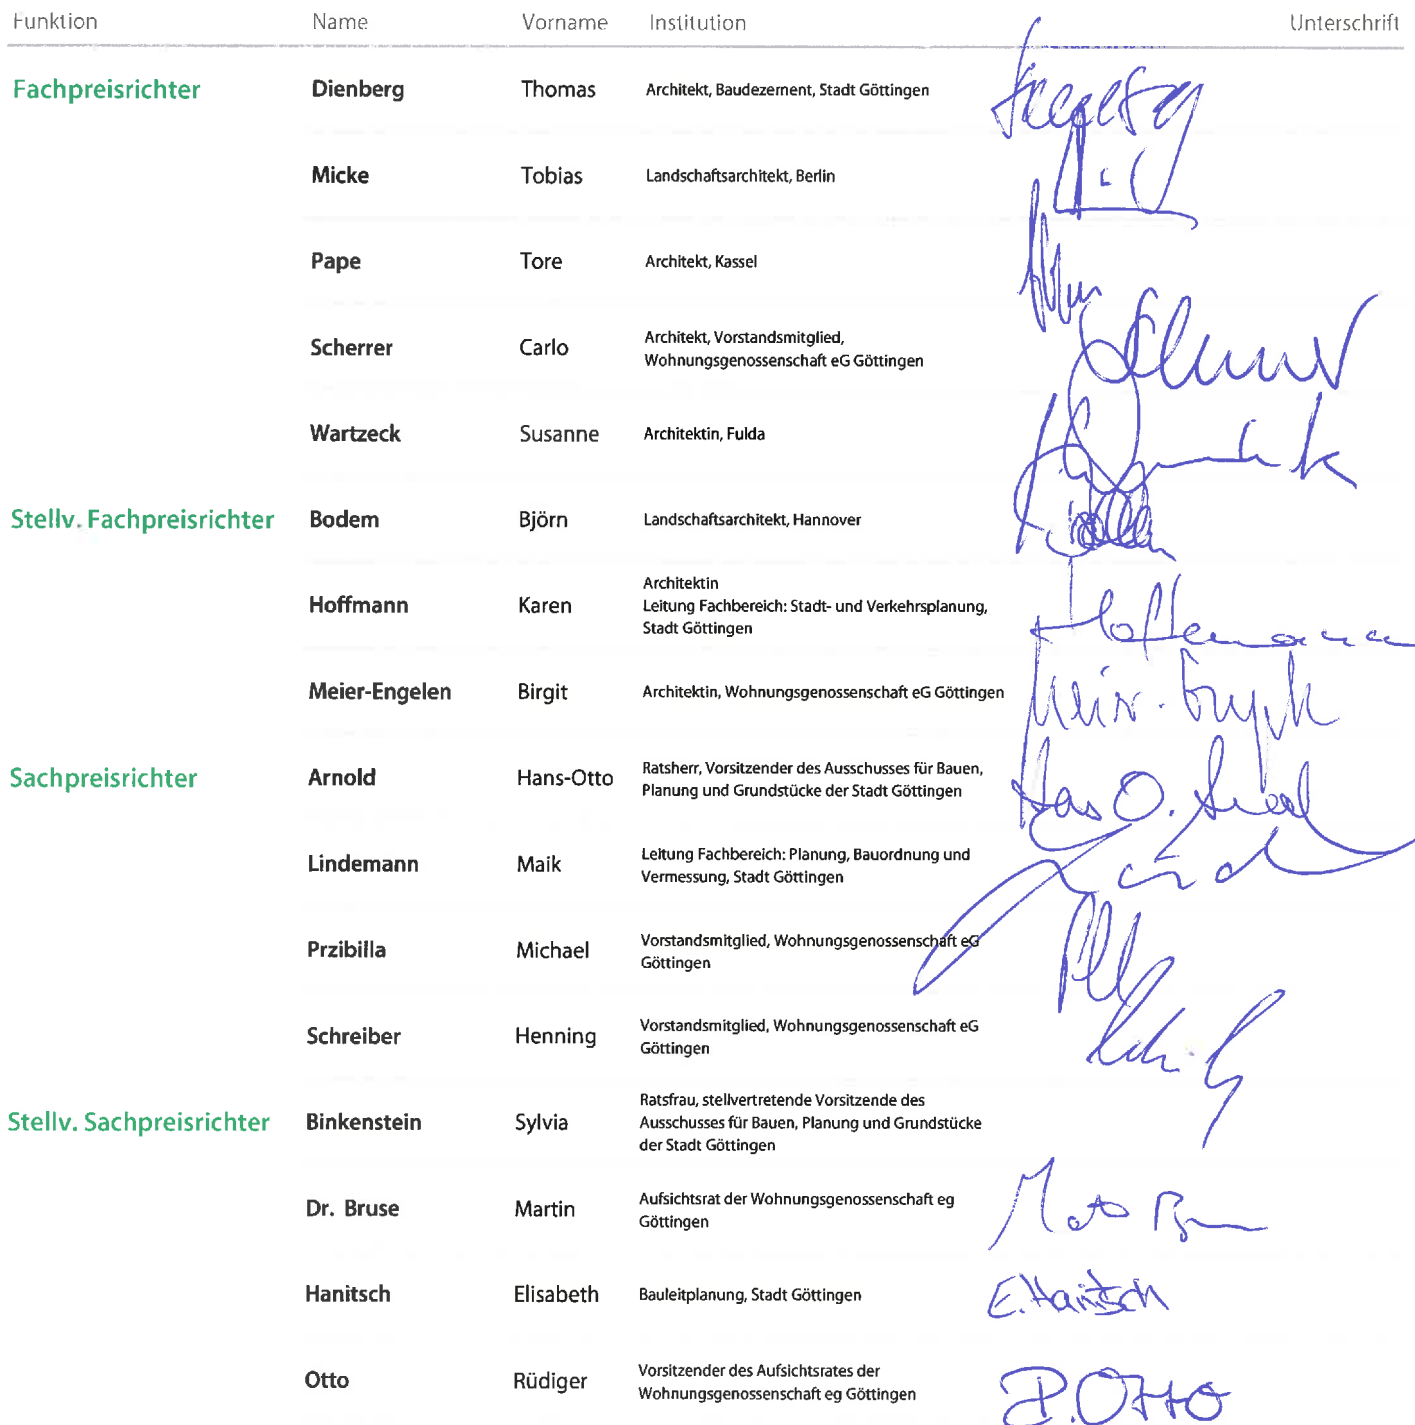 Funktion Name Vorname Institution Unterschrift
Fachpreisrichter Dienberg Thomas Architekt, Baudezernent, Stadt Göttingen
Micke Tobias Landschaftsarchitekt, Berlin
Pape Tore Architekt, Kassel
Scherrer Carlo Architekt, Vorstandsmitglied,
Wohnungsgenossenschaft eG Göttingen
Wartzeck Susanne Architektin, Fulda
Stellv. Fachpreisrichter Bodem Björn Landschaftsarchitekt, Hannover
Hoffmann Karen Architektin
Leitung Fachbereich: Stadt- und Verkehrsplanung,
Stadt Göttingen
Hoffmann
Meier-Engelen Birgit Architektin, Wohnungsgenossenschaft eG Göttingen
Sachpreisrichter Arnold Hans-Otto Ratsherr, Vorsitzender des Ausschusses für Bauen,
Planung und Grundstücke der Stadt Göttingen
Lindemann Maik Leitung Fachbereich: Planung, Bauordnung und
Vermessung, Stadt Göttingen
Przibilla Michael Vorstandsmitglied, Wohnungsgenossenschaft eG
Göttingen
Schreiber Henning Vorstandsmitglied, Wohnungsgenossenschaft eG
Göttingen
Stellv. Sachpreisrichter Binkenstein Sylvia Ratsfrau, stellvertretende Vorsitzende des
Ausschusses für Bauen, Planung und Grundstücke
der Stadt Göttingen
Dr. Bruse Martin Aufsichtsrat der Wohnungsgenossenschaft eg
Göttingen
Hanitsch Elisabeth Bauleitplanung, Stadt Göttingen E. Hanitsch
Otto Rüdiger Vorsitzender des Aufsichtsrates der
Wohnungsgenossenschaft eg Göttingen
R. Otto